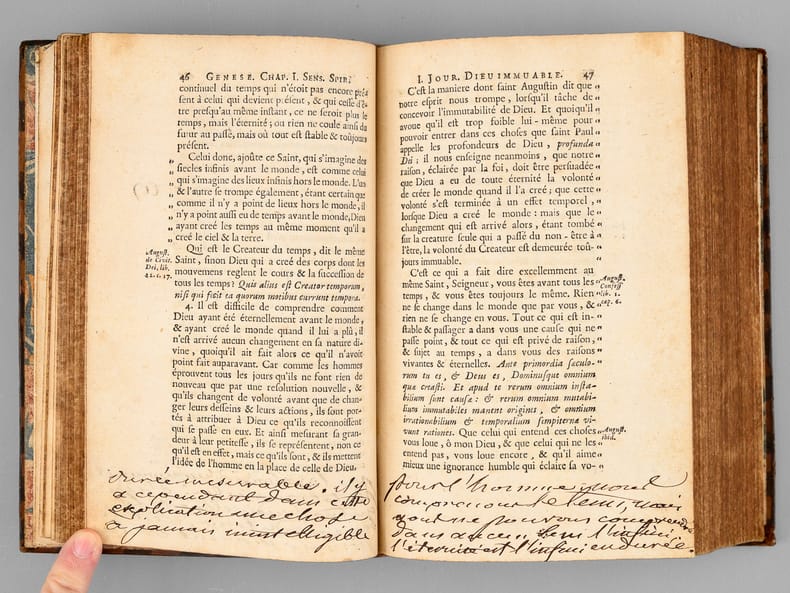 46 GENESE. CHAP. I. SENS. SPIR.
continuel du temps qui n'étoit pas encore pré
sent à celui qui devient présent, & qui cesse d'ê
tre presqu'au même instant, ce ne seroit plus le
temps, mais l'éternité; ou rien ne coule ainsi du
futur au passé, mais où tout est stable & toûjours
présent.
„ Celui donc, ajoûte ce Saint, qui s'imagine des
„ siecles infinis avant le monde, est comme celui
„ qui s'imagine des lieux infinis hors le monde. L'un
„ & l'autre se trompe également, étant certain que
„ comme il n'y a point de lieux hors le monde, il
„ n'y a point aussi eu de temps avant le monde, Dieu
„ ayant creé les temps au même moment qu'il a
„ creé le ciel & la terre.
Qui est le Createur du temps, dit le même
August. de Civit. Dei, lib.
Saint, sinon Dieu qui a creé des corps dont les
mouvemens reglent le cours & la succession de
tous les temps? Quis alius est Creator temporum,
nisi qui fecit ea quorum motibus currunt tempora.
4. Il est difficile de comprendre comment
Dieu ayant été éternellement avant le monde,
& ayant creé le monde quand il lui a plû, il
n'est arrivé aucun changement en sa nature di-
vine, quoiqu'il ait fait alors ce qu'il n'avoit
point fait auparavant. Car comme les hommes
éprouvent tous les jours qu'ils ne font rien de
nouveau que par une resolution nouvelle, &
qu'ils changent de volonté avant que de chan-
ger leurs desseins & leurs actions, ils sont por-
tés à attribuer à Dieu ce qu'ils reconnoissent
qui se passe en eux. Et ainsi mesurant sa gran-
deur à leur petitesse, ils se représentent, non ce
qu'il est en effet, mais ce qu'ils sont, & ils mettent
l'idée de l'homme en la place de celle de Dieu.
durée mesurable. il y
a cependant dans cette
explication une chose
a jamais inintelligible
I. JOUR. DIEU IMMUABLE. 47
C'est la maniere dont saint Augustin dit que „
notre esprit nous trompe, lorsqu'il tâche de „
concevoir l'immutabilité de Dieu. Et quoiqu'il „
avoue qu'il est trop foible lui-même pour „
pouvoir entrer dans ces choses que saint Paul „
appelle les profondeurs de Dieu, profunda „
Dei; il nous enseigne neanmoins, que notre „
raison, éclairée par la foi, doit être persuadée „
que Dieu a eu de toute éternité la volonté „
de créer le monde quand il l'a creé; que cette „
volonté s'est terminée à un effet temporel, „
lorsque Dieu a creé le monde: mais que le „
changement qui est arrivé alors, étant tombé „
sur la creature seule qui a passé du non-être à „
l'être, la volonté du Createur est demeurée toû- „
jours immuable.
C'est ce qui a fait dire excellemment au
même Saint, Seigneur, vous êtes avant tous les „ August. Confess.
temps, & vous êtes toujours le même. Rien „ lib. 1.
ne se change dans le monde que par vous, & „ cap. 6.
rien ne se change en vous. Tout ce qui est in- „
stable & passager a dans vous une cause qui ne „
passe point, & tout ce qui est privé de raison, „
& sujet au temps, a dans vous des raisons „
vivantes & éternelles. Ante primordia sæculo-
rum tu es, & Deus es, Dominusque omnium
quæ creasti. Et apud te rerum omnium insta-
bilium stant causæ: & rerum omnium mutabi-
lium immutabiles manent origines, & omnium
irrationabilium & temporalium sempiternæ vi-
vunt rationes. Que celui qui entend ces choses „ August. ibid.
vous loue, ô mon Dieu, & que celui qui ne les „
entend pas, vous loue encore, & qu'il aime „
mieux une ignorance humble qui éclaire sa vo-
pour l'homme nous
comprenons le tems, mais
nous ne pouvons comprendre
l'éternité et l'infini en durée.